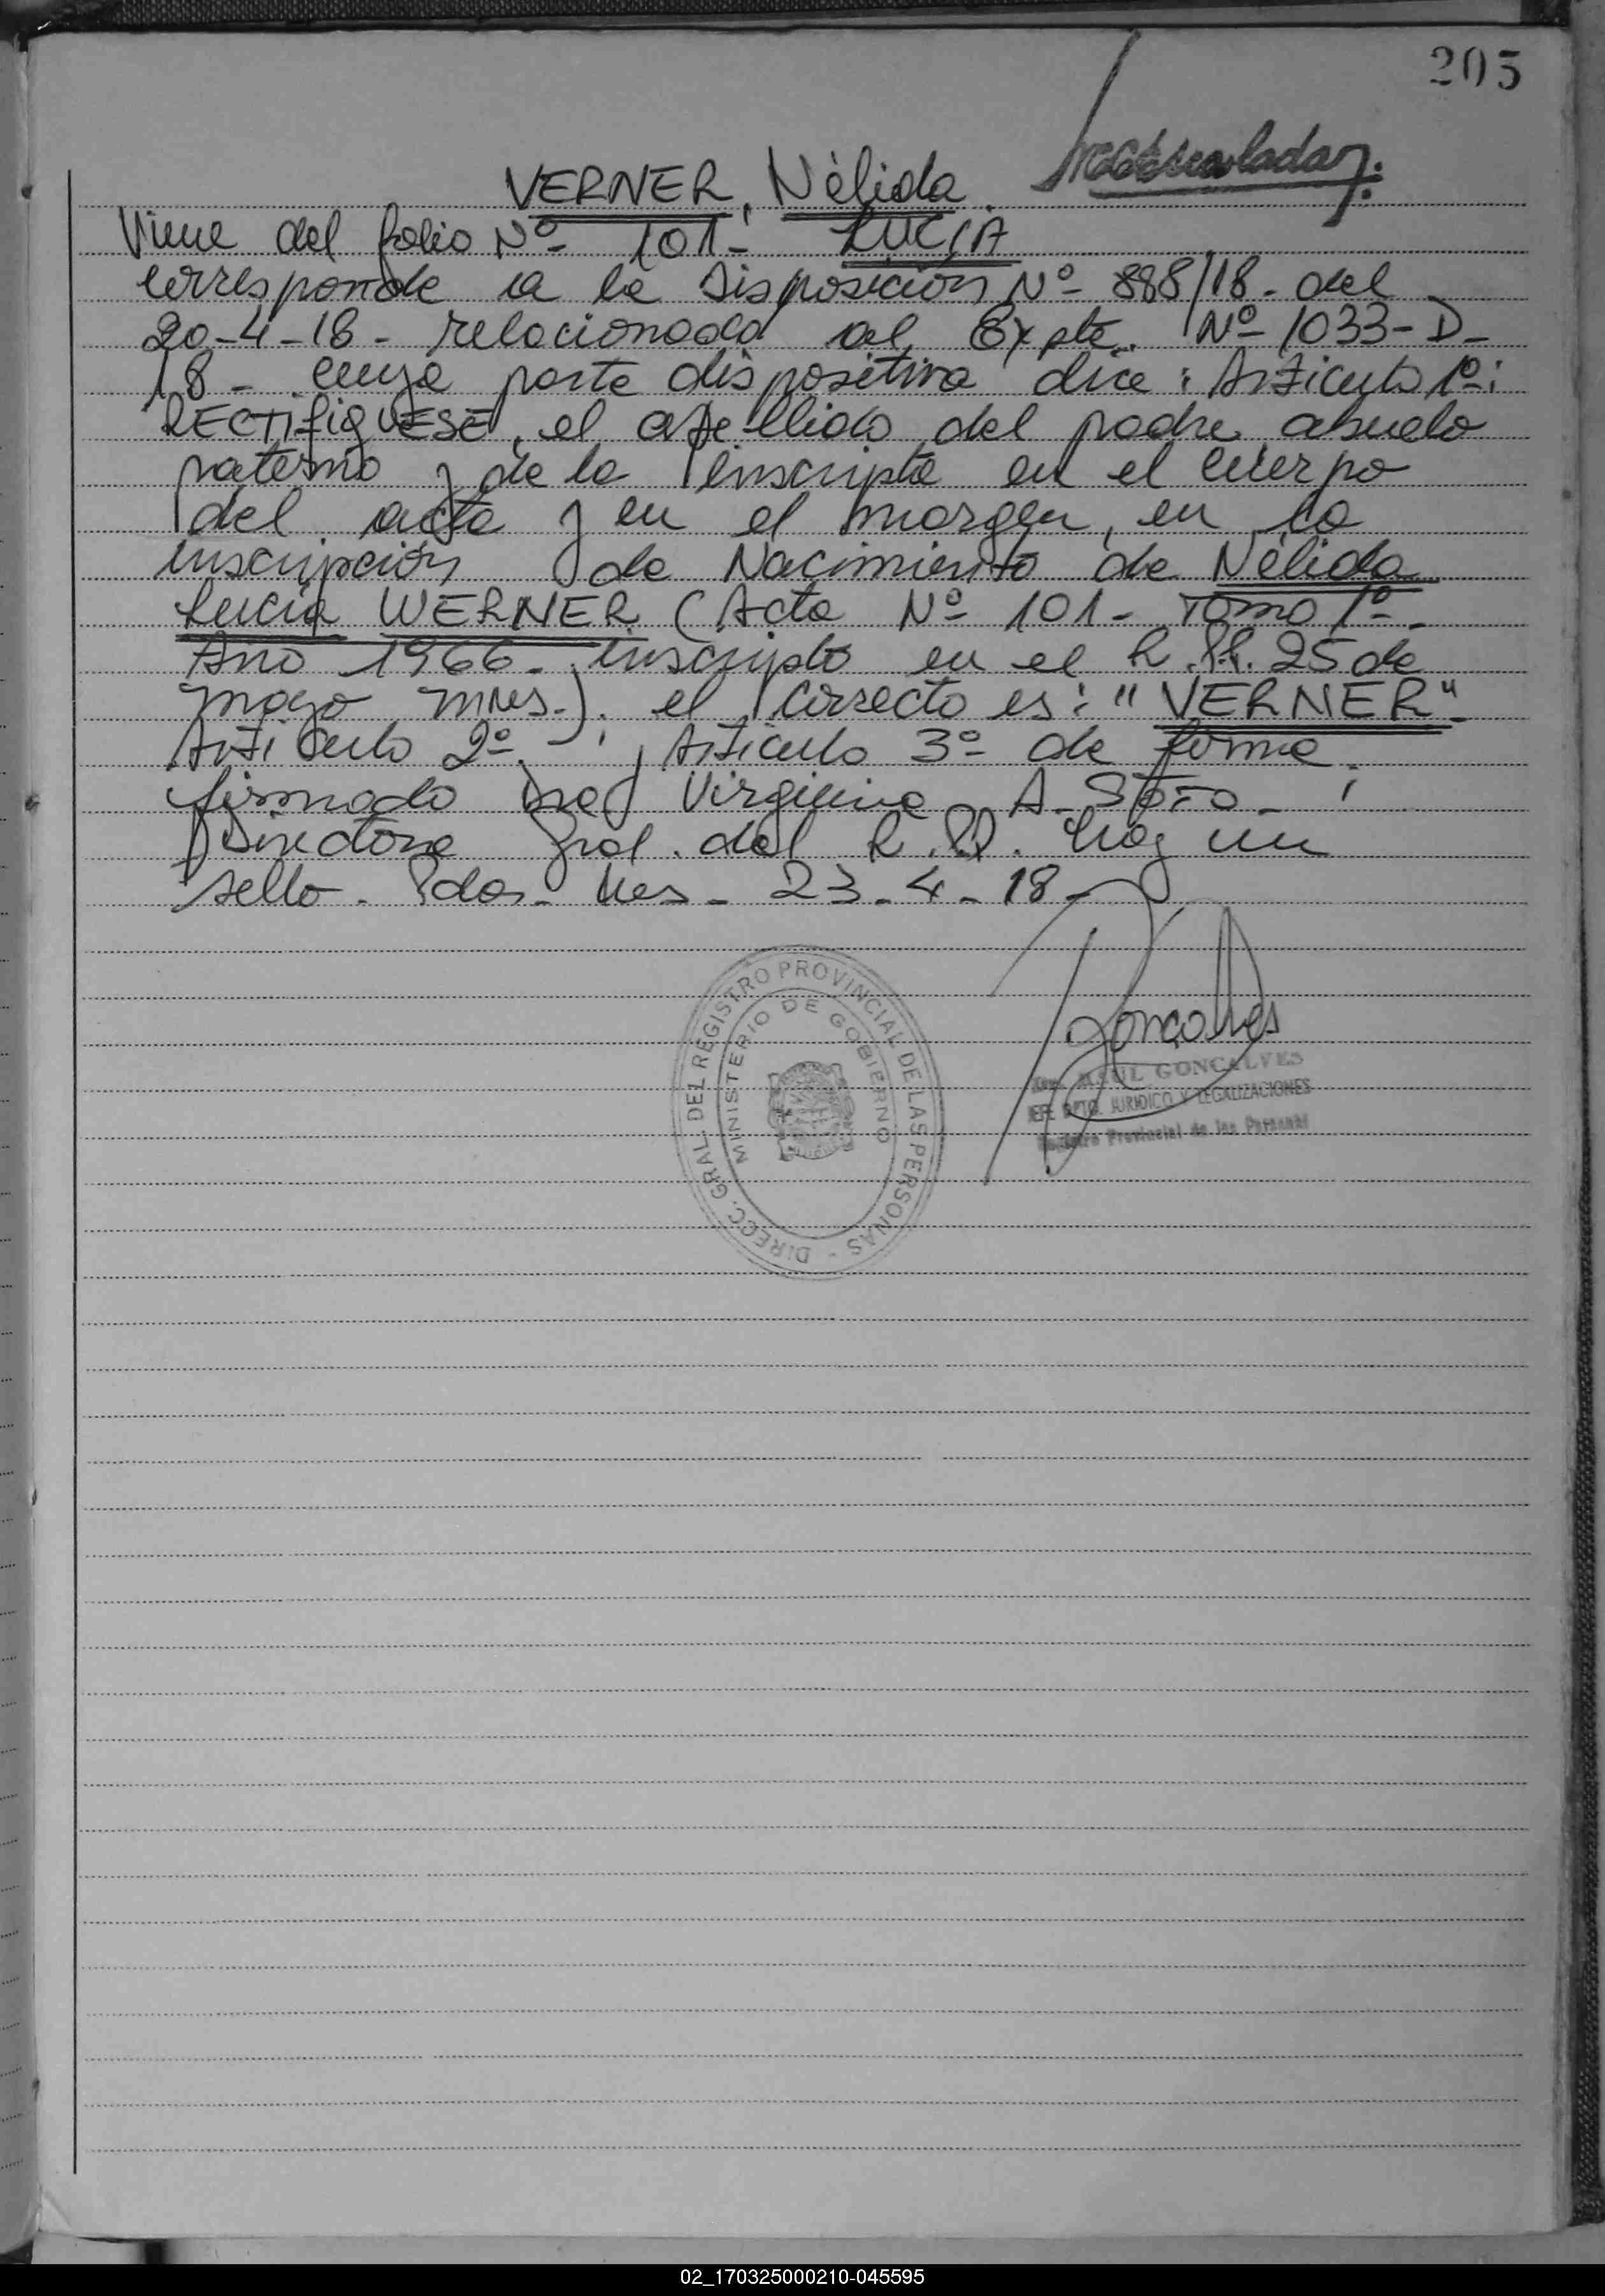 205
VERNER, Nélida.
Viene del folio Nº 101- LUCIA
corresponde a la Disposición Nº 888/18- del
20-4-18- relacionada al Expte. Nº 1033-D-
18- cuya parte dispositiva dice: Artículo 1º:
RECTIFIQUESE, el apellido del padre, abuelo
paterno y de la inscripta en el cuerpo
del acta y en el margen, en la
inscripción de Nacimiento de Nélida
Lucia WERNER (Acta Nº 101- Tomo 1º-
Año 1966- inscripto en el R.PP. 25 de
mayo Mnes-). el correcto es: "VERNER"-
Artículo 2º- , Artículo 3º de forma.
firmado Dra Virginia A. Soto-
Directora Gral. del R.PP. hay un
sello- Pdas- Mes- 23-4-18-
DIRECC. GRAL DEL REGISTRO PROVINCIAL DE LAS PERSONAS -
MINISTERIO DE GOBIERNO
GONCALVES
JEFE DPTO. JURIDICO Y LEGALIZACIONES
Registro Provincial de las Personas
02_170325000210-045595